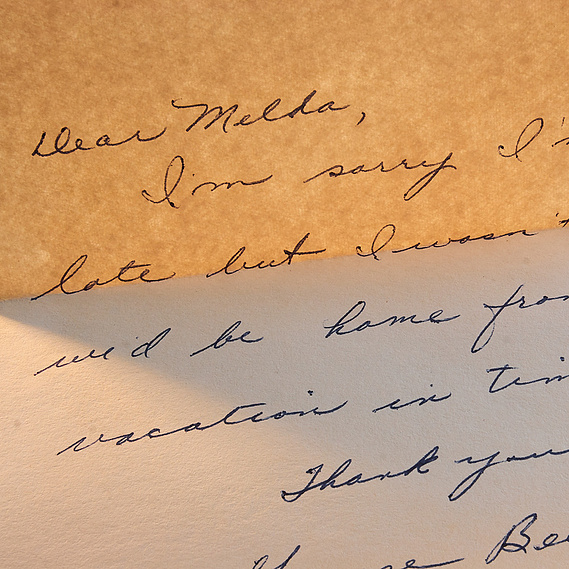 Dear Melda,
I'm sorry I'm
late but I wasn't
we'd be home from
vacation in time
Thank you